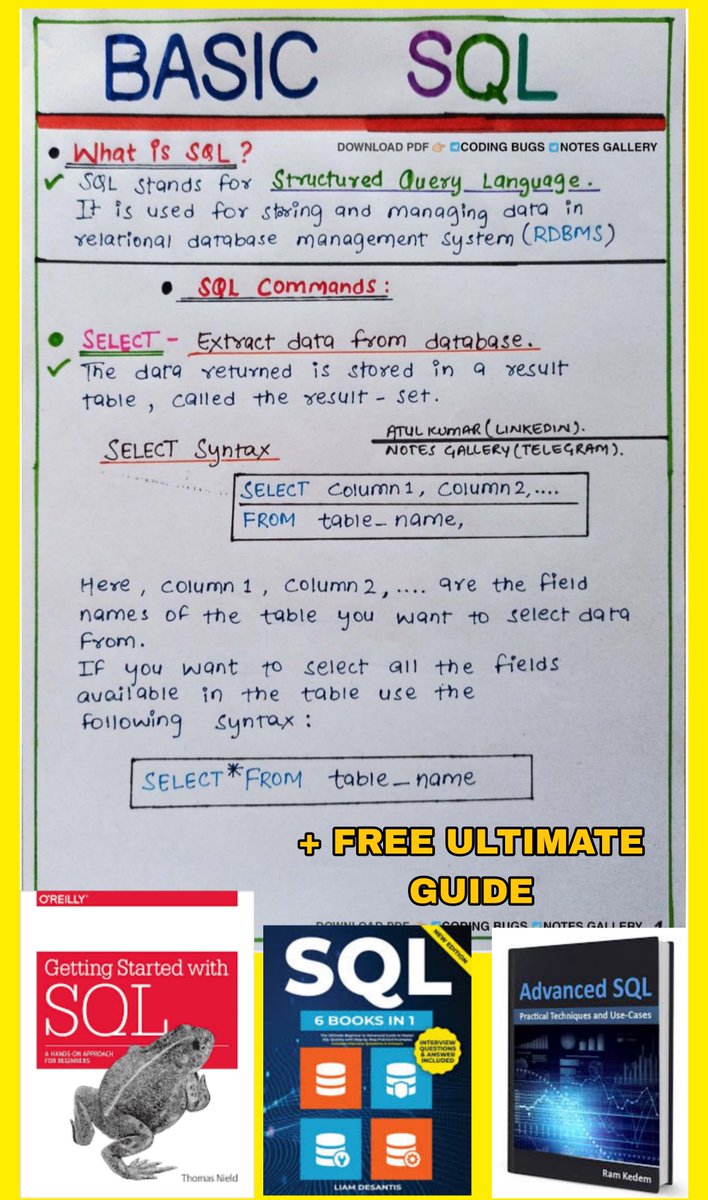 BASIC SQL
• What is SQL ?
DOWNLOAD PDF 👉 CODING BUGS NOTES GALLERY
✓ SQL stands for Structured Query Language.
It is used for storing and managing data in
relational database management system (RDBMS)
• SQL Commands :
• SELECT - Extract data from database.
✓ The data returned is stored in a result
table, called the result-set.
ATUL KUMAR (LINKEDIN).
NOTES GALLERY (TELEGRAM).
SELECT Syntax
SELECT Column1, Column2,....
FROM table_name,
Here, column1, column2,.... are the field
names of the table you want to select data
from.
If you want to select all the fields
available in the table use the
following syntax :
SELECT * FROM table_name
+ FREE ULTIMATE
GUIDE
DOWNLOAD PDF 👉 CODING BUGS NOTES GALLERY
O'REILLY®
Getting Started with
SQL
A HANDS-ON APPROACH
FOR BEGINNERS
Thomas Nield
NEW EDITION
SQL
6 BOOKS IN 1
INTERVIEW
QUESTIONS
& ANSWER
INCLUDED
LIAM DESANTIS
Advanced SQL
Practical Techniques and Use-Cases
Ram Kedem